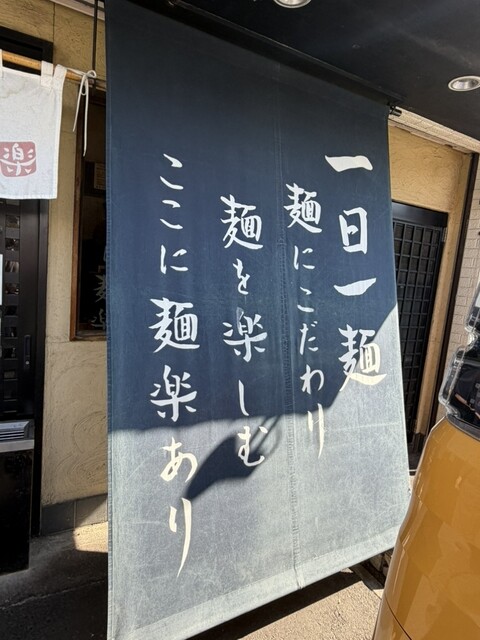 一日一麺
麺にこだわり
麺を楽しむ
ここに麺楽あり
楽